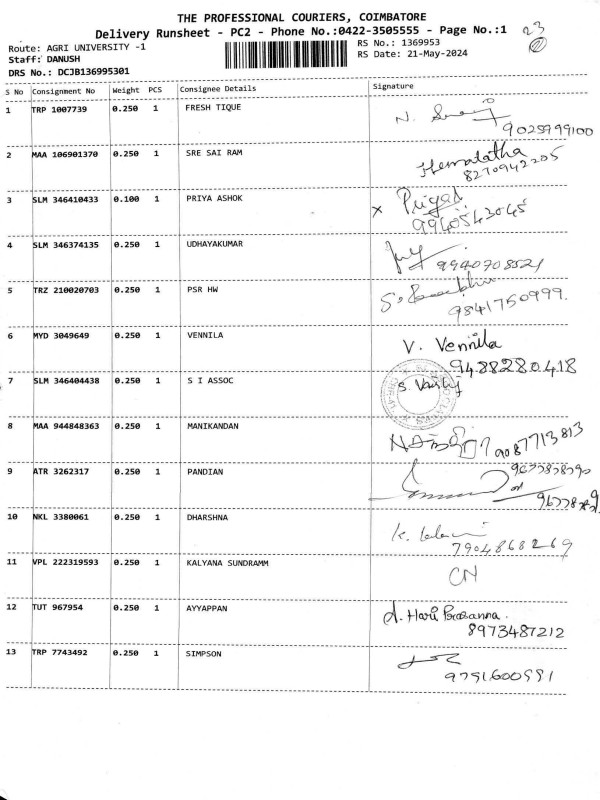 THE PROFESSIONAL COURIERS, COIMBATORE
Delivery Runsheet - PC2 - Phone No.:0422-3505555 - Page No.:1
23
2
Route: AGRI UNIVERSITY -1
RS No.: 1369953
Staff: DANUSH
RS Date: 21-May-2024
DRS No.: DCJB136995301
S No Consignment No Weight PCS Consignee Details Signature
1 TRP 1007739 0.250 1 FRESH TIQUE
9025799100
2 MAA 106901370 0.250 1 SRE SAI RAM Hemalatha
8270942205
3 SLM 346410433 0.100 1 PRIYA ASHOK x Priya
9940543045
4 SLM 346374135 0.250 1 UDHAYAKUMAR
9940708521
5 TRZ 210020703 0.250 1 PSR HW
9841750999.
6 MYD 3049649 0.250 1 VENNILA V. Vennila
9488280418
7 SLM 346404438 0.250 1 S I ASSOC
8 MAA 944848363 0.250 1 MANIKANDAN
9087713813
9 ATR 3262317 0.250 1 PANDIAN
10 NKL 3380061 0.250 1 DHARSHNA
7904868269
11 VPL 222319593 0.250 1 KALYANA SUNDRAMM CN
12 TUT 967954 0.250 1 AYYAPPAN d. Hari Prasanna
8973487212
13 TRP 7743492 0.250 1 SIMPSON
9791600991